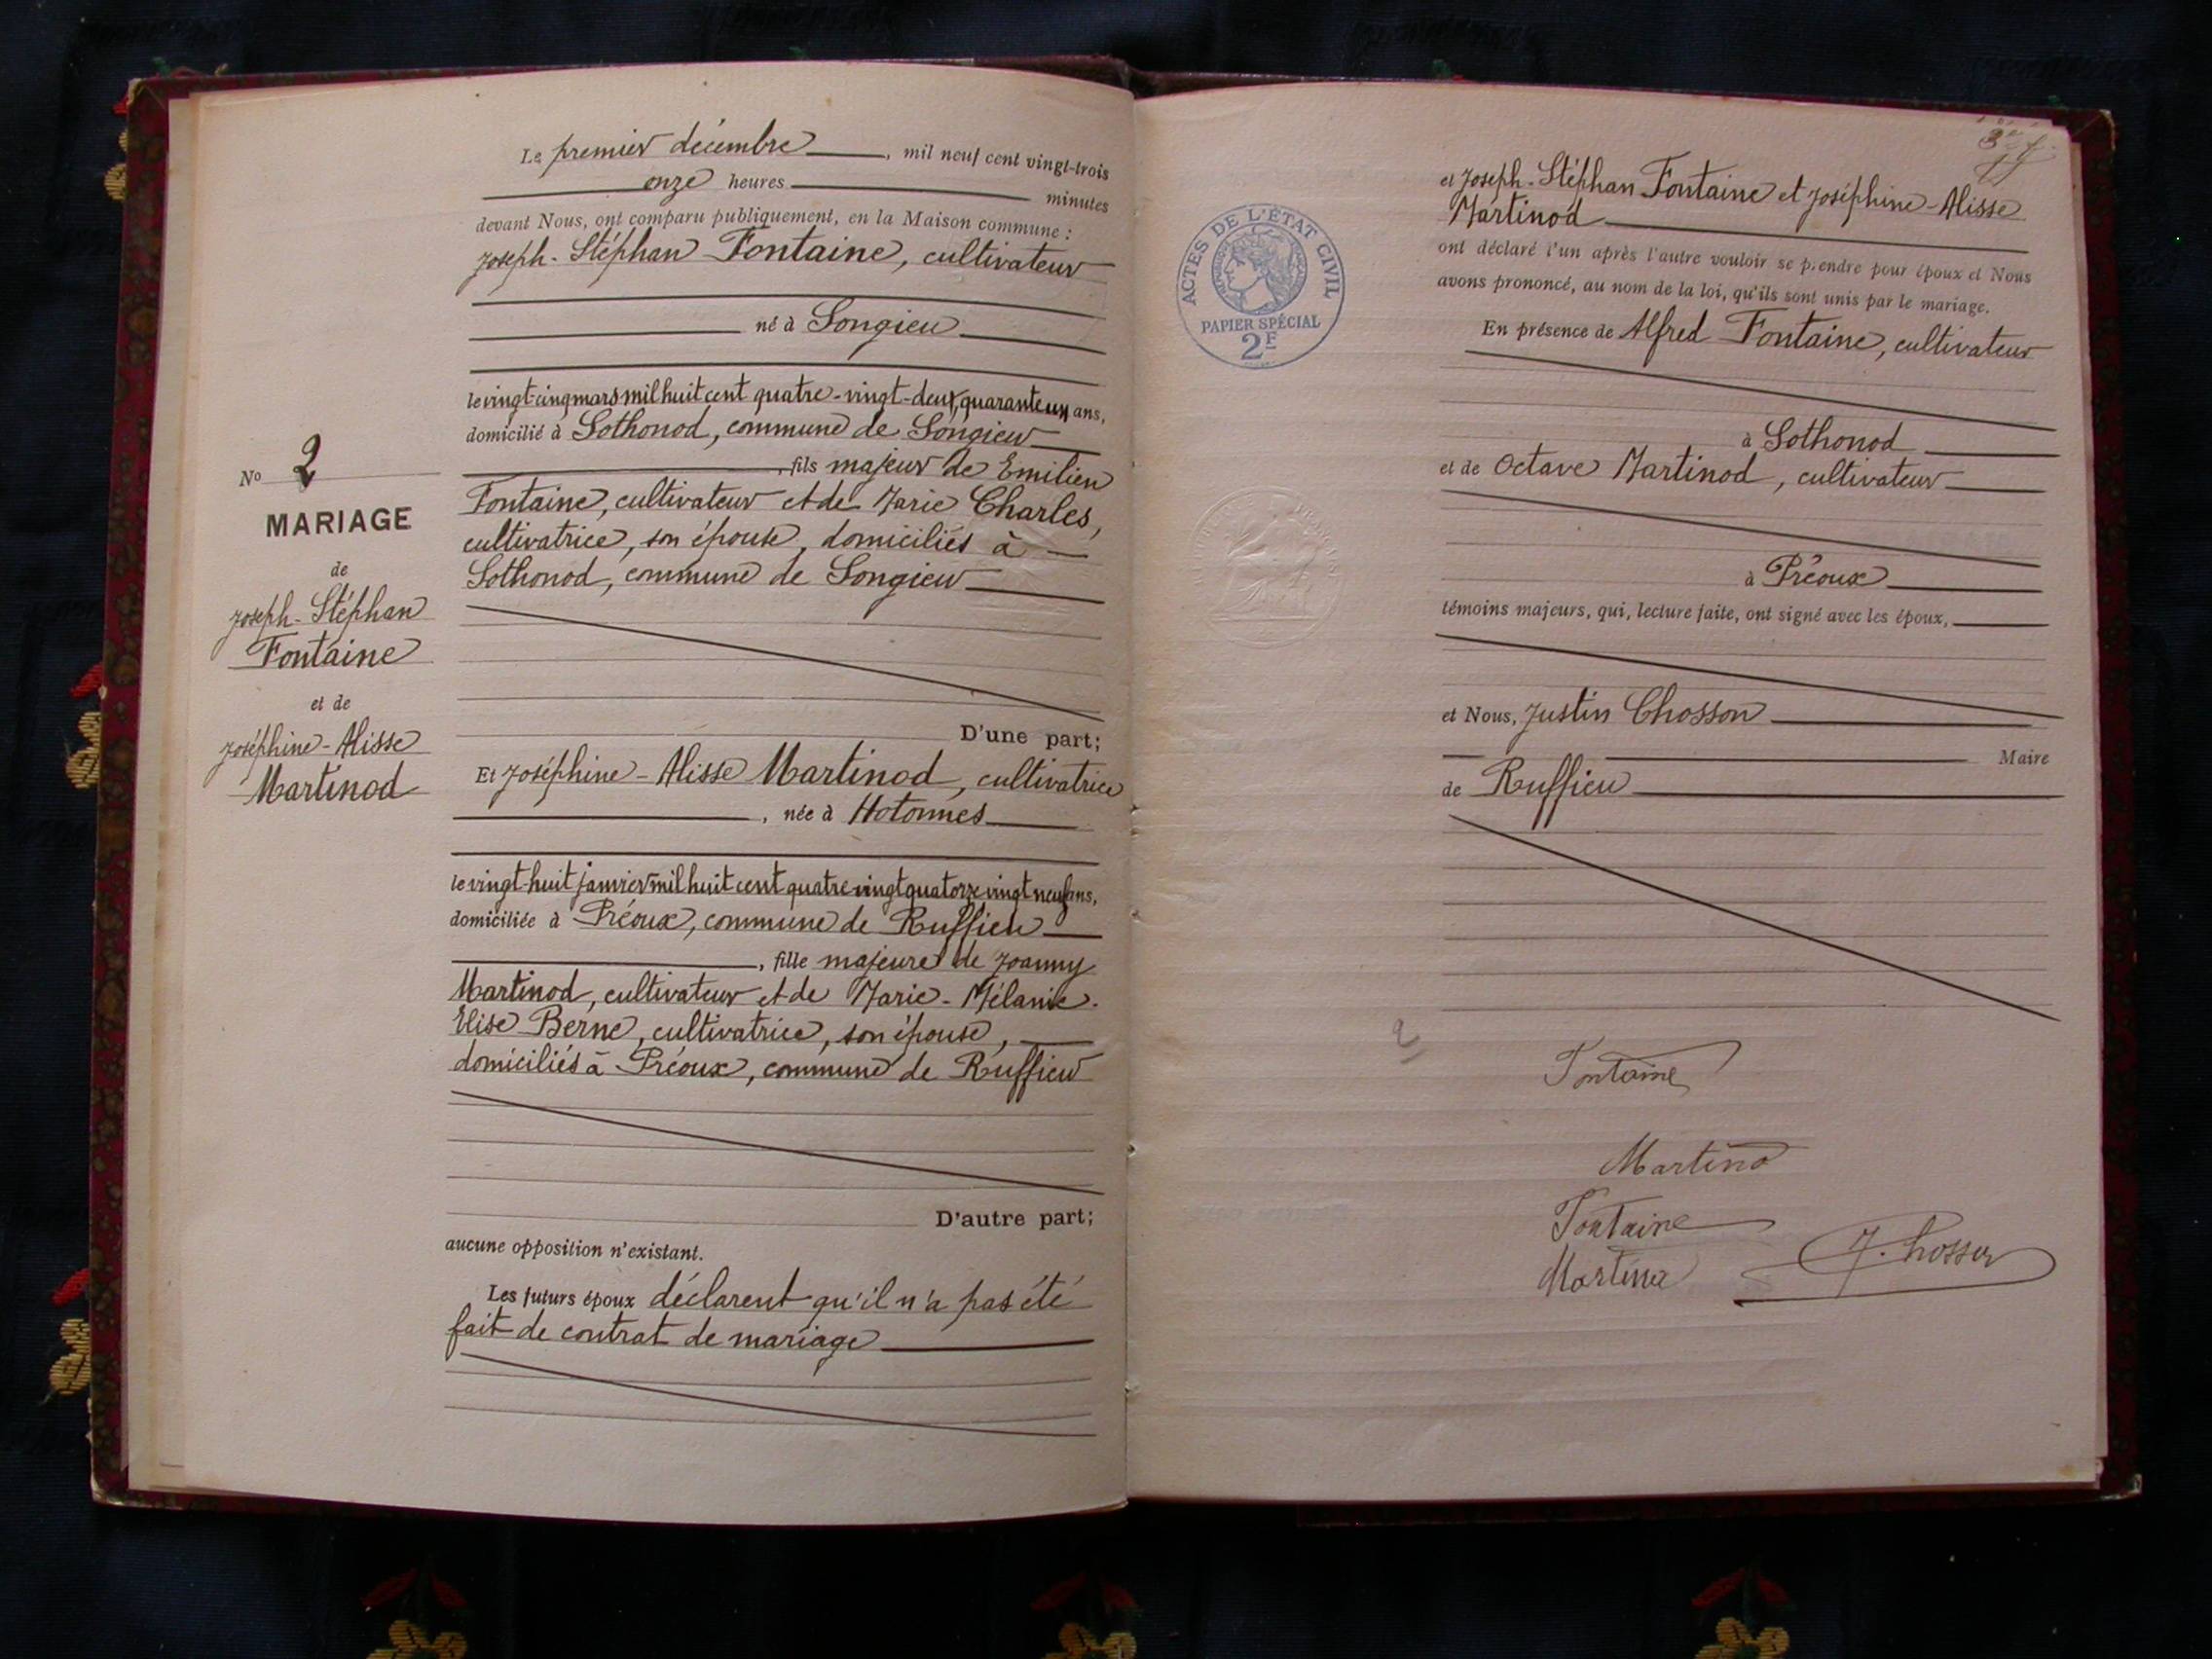 Le premier décembre, mil neuf cent vingt-trois
onze heures minutes
devant Nous, ont comparu publiquement, en la Maison commune :
Joseph-Stéphan Fontaine, cultivateur
né à Songieu
le vingt-cinq mars mil huit cent quatre-vingt-deux, quarante un ans,
domicilié à Sothonod, commune de Songieu
, fils majeur de Emilien
Fontaine, cultivateur et de Marie Charles,
cultivatrice, son épouse, domiciliés à
Sothonod, commune de Songieu
No 2
MARIAGE
de
Joseph-Stéphan
Fontaine
et de
Joséphine-Alisse
Martinod
D'une part;
Et Joséphine-Alisse Martinod, cultivatrice
, née à Hotonnes
le vingt-huit janvier mil huit cent quatre vingt quatorze vingt neuf ans,
domiciliée à Préoux, commune de Ruffieu
, fille majeure de Joanny
Martinod, cultivateur et de Marie-Mélanie-
Elise Berne, cultivatrice, son épouse,
domiciliés à Préoux, commune de Ruffieu
D'autre part;
aucune opposition n'existant.
Les futurs époux déclarent qu'il n'a pas été
fait de contrat de mariage
et Joseph-Stéphan Fontaine et Joséphine-Alisse
Martinod
ont déclaré l'un après l'autre vouloir se prendre pour époux et Nous
avons prononcé, au nom de la loi, qu'ils sont unis par le mariage.
ACTES DE L'ÉTAT CIVIL
PAPIER SPÉCIAL
2F
En présence de Alfred Fontaine, cultivateur
à Sothonod
et de Octave Martinod, cultivateur
à Préoux
témoins majeurs, qui, lecture faite, ont signé avec les époux,
et Nous, Justin Chosson
Maire
de Ruffieu
2
Fontaine
Martino
Fontaine